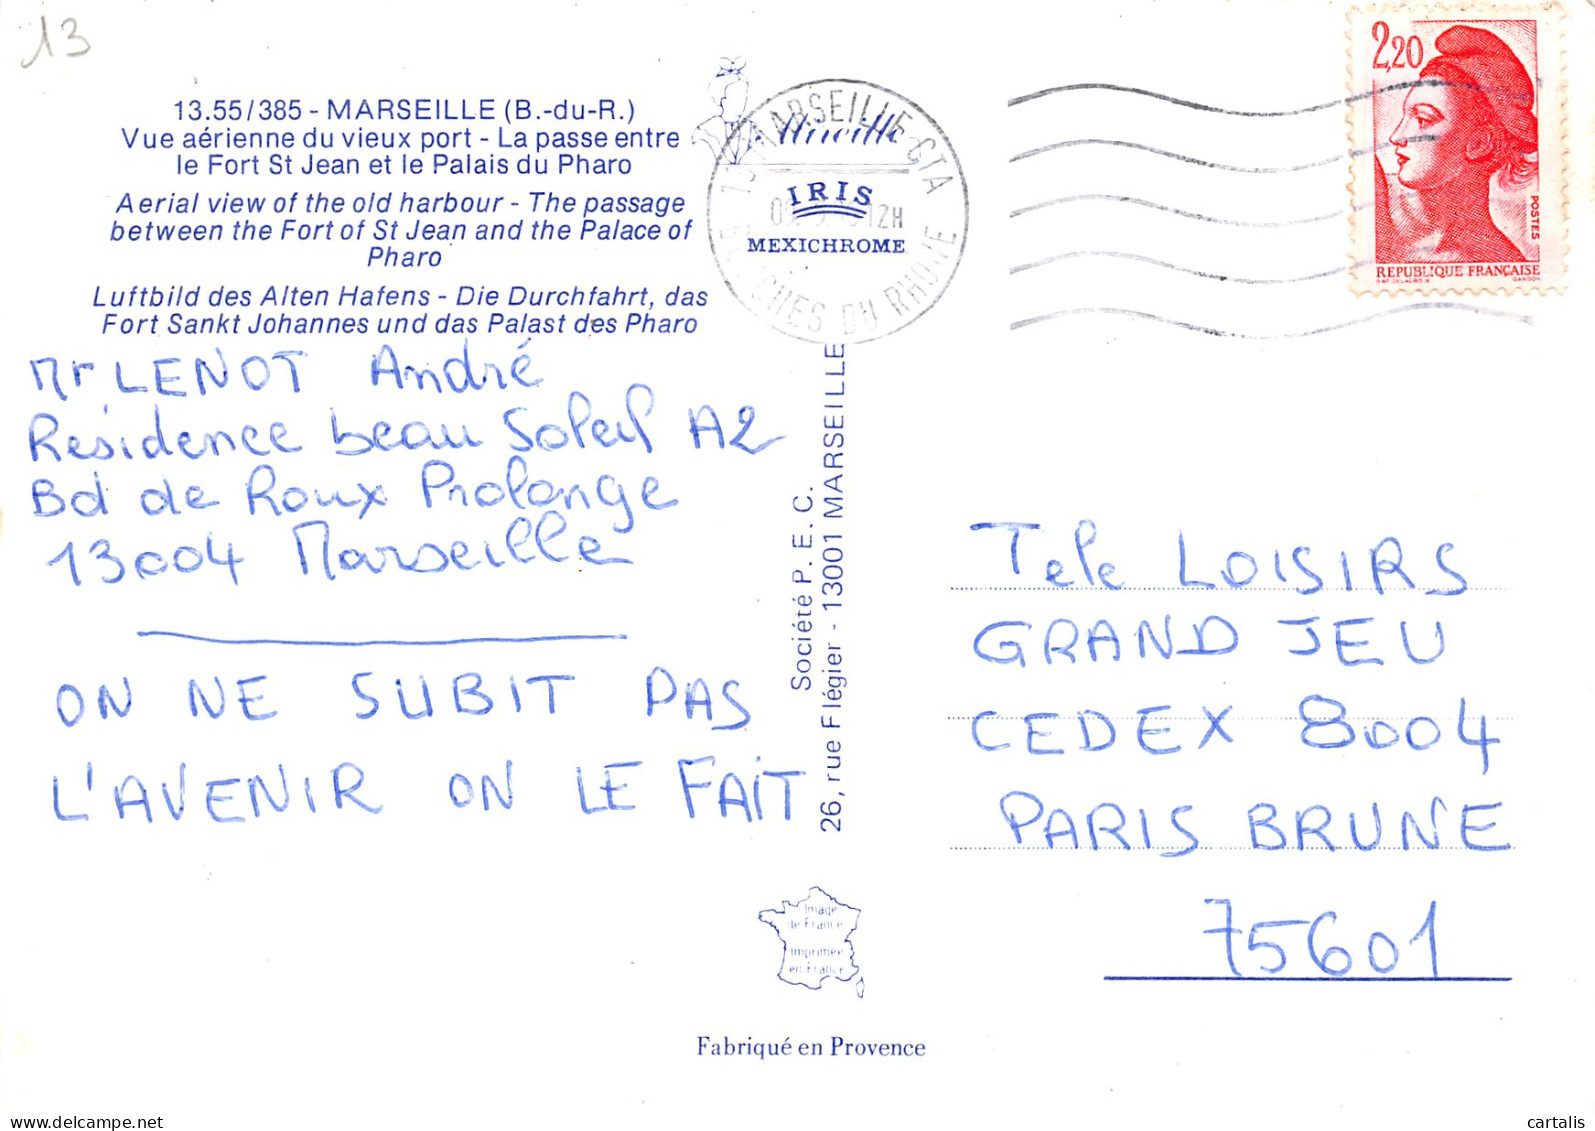 13
13.55/385 - MARSEILLE (B.-du-R.)
Vue aérienne du vieux port - La passe entre
le Fort St Jean et le Palais du Pharo
Aerial view of the old harbour - The passage
between the Fort of St Jean and the Palace of
Pharo
Luftbild des Alten Hafens - Die Durchfahrt, das
Fort Sankt Johannes und das Palast des Pharo
Mr LENOT André
Résidence beau Soleil A2
Bd de Roux Prolonge
13004 Marseille
ON NE SUBIT PAS
L'AVENIR ON LE FAIT
13 MARSEILLE CTA
12H
BOUCHES DU RHONE
IRIS
MEXICHROME
Société P. E. C.
26, rue Flégier - 13001 MARSEILLE
2,20
POSTES
REPUBLIQUE FRANÇAISE
GANDON
Tele LOISIRS
GRAND JEU
CEDEX 8004
PARIS BRUNE
75601
Image
de France
Imprimée
en France
Fabriqué en Provence
cartalis